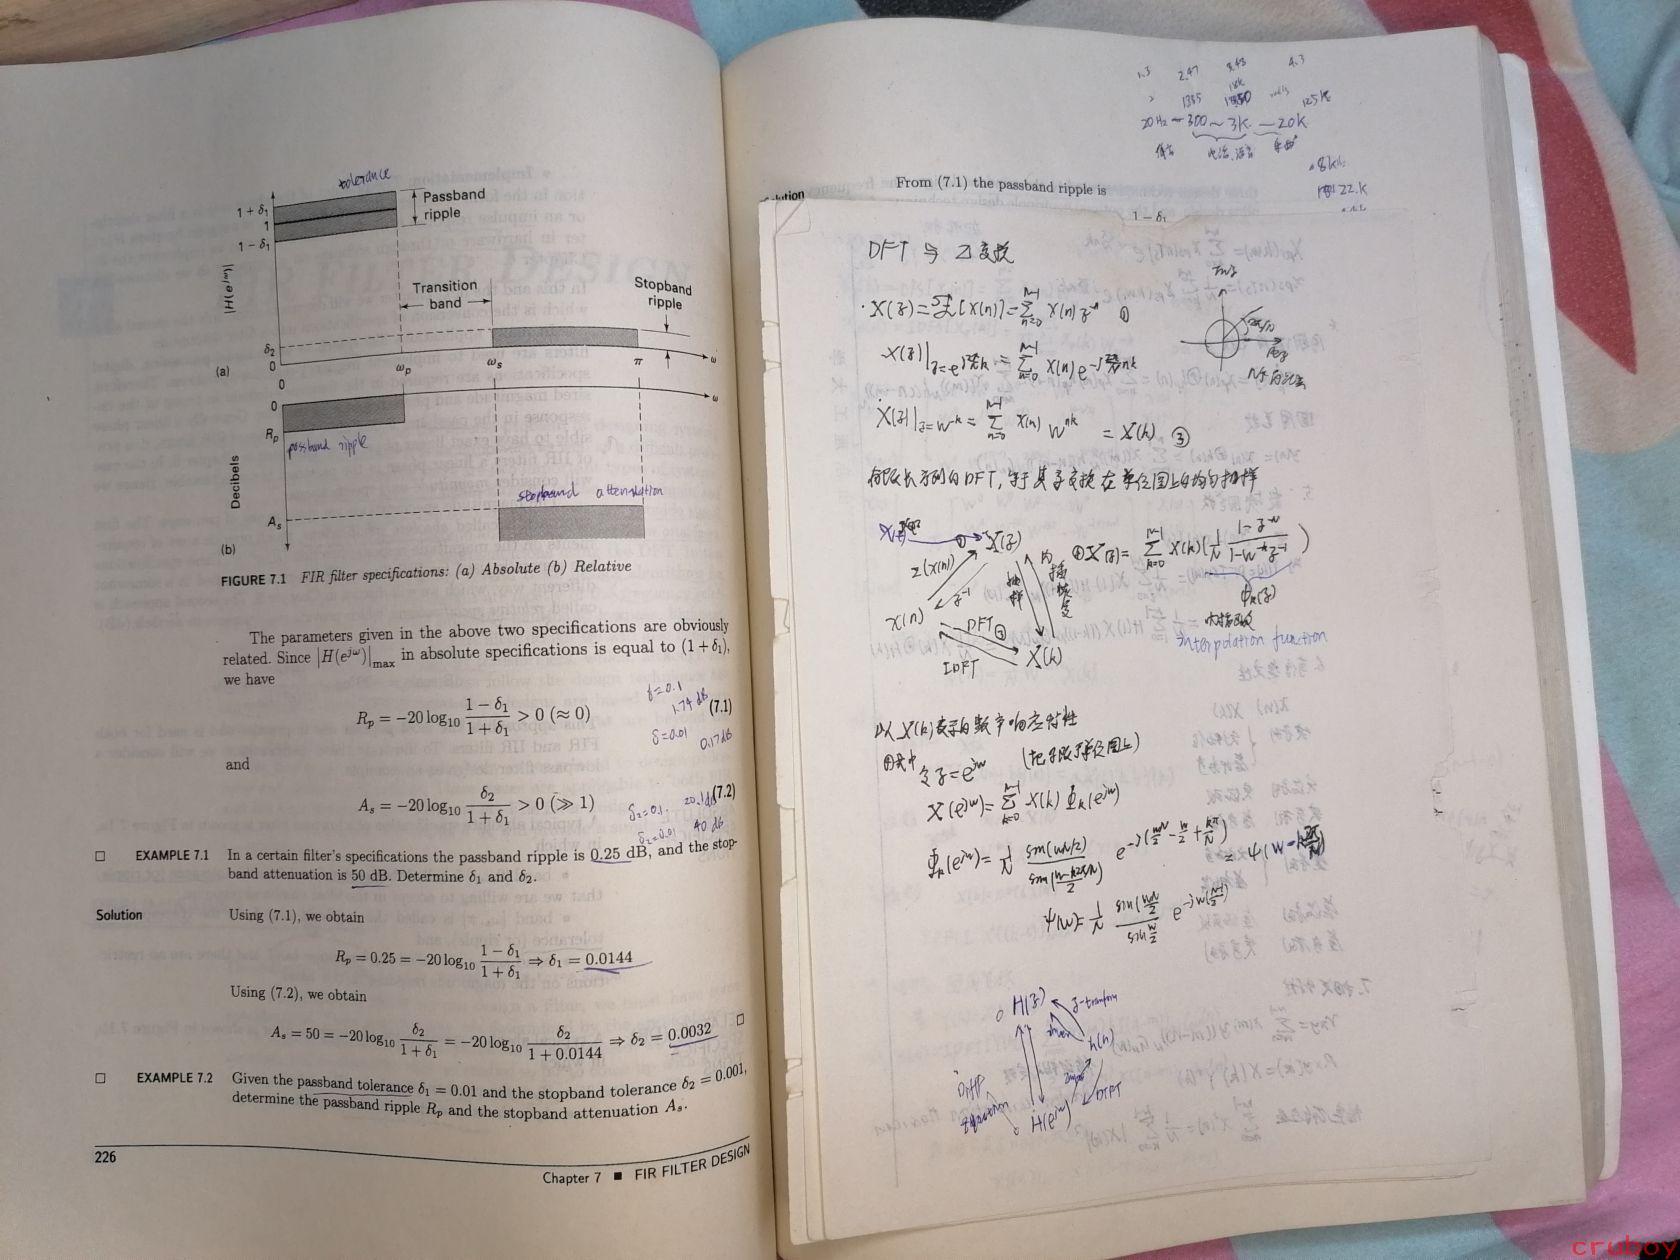 tolerance
1 + δ₁
1
1 − δ₁
Passband
ripple
|H(e^{jω})|
Transition
band
Stopband
ripple
δ₂
0
(a)
ω_p
ω_s
π
ω
0
0
ω
R_p
passband ripple
Decibels
stopband attenuation
A_s
(b)
FIGURE 7.1 FIR filter specifications: (a) Absolute (b) Relative
The parameters given in the above two specifications are obviously
related. Since |H(e^{jω})|_max in absolute specifications is equal to (1 + δ₁),
we have
R_p = −20 log₁₀ (1 − δ₁)/(1 + δ₁) > 0 (≈ 0) (7.1)
δ=0.1
1.74 dB
δ=0.01
0.17dB
and
A_s = −20 log₁₀ δ₂/(1 + δ₁) > 0 (≫ 1) (7.2)
δ₂=0.1 20.1dB
δ₂=0.01 40 dB
□ EXAMPLE 7.1 In a certain filter's specifications the passband ripple is 0.25 dB, and the stop-
band attenuation is 50 dB. Determine δ₁ and δ₂.
Solution Using (7.1), we obtain
R_p = 0.25 = −20 log₁₀ (1 − δ₁)/(1 + δ₁) ⇒ δ₁ = 0.0144
Using (7.2), we obtain
A_s = 50 = −20 log₁₀ δ₂/(1 + δ₁) = −20 log₁₀ δ₂/(1 + 0.0144) ⇒ δ₂ = 0.0032 □
□ EXAMPLE 7.2 Given the passband tolerance δ₁ = 0.01 and the stopband tolerance δ₂ = 0.001,
determine the passband ripple R_p and the stopband attenuation A_s.
226
Chapter 7 ■ FIR FILTER DESIGN
20Hz ~ 300 ~ 3K — 20K
From (7.1) the passband ripple is
1 − δ₁
DFT 与 Z 变换
X(z) = Z[x(n)] = Σ_{n=0}^{N-1} x(n) z^{-n} ①
X(z)|_{z=e^{j2π/N k}} = Σ_{n=0}^{N-1} x(n) e^{-j 2π/N nk}
X(z)|_{z=W^{-k}} = Σ_{n=0}^{N-1} x(n) W^{nk} = X(k) ③
有限长序列的DFT,等于其z变换在单位圆上的均匀抽样
① X(z)
Z(x(n))
z⁻¹
抽样
内插恢复
x(n)
DFT ③
IDFT
X(k)
④ X(z) = Σ_{k=0}^{N-1} X(k) (1/N (1−z^{-N})/(1−W^{-k}z^{-1}))
Φ_k(z)
内插函数
interpolation function
以 X(k) 表示的频率响应特性
④式中 令 z=e^{jω} (把z限于单位圆上)
X(e^{jω}) = Σ_{k=0}^{N-1} X(k) Φ_k(e^{jω})
Φ_k(e^{jω}) = 1/N sin(ωN/2)/sin((ω−k2π/N)/2) e^{-j(ωN/2 − ω/2 + kπ/N)} = ψ(ω − k 2π/N)
ψ(ω) = 1/N sin(ωN/2)/sin(ω/2) e^{-jω((N-1)/2)}
H(z)
z-transform
h(n)
DTFT
H(e^{jω})
cruboy